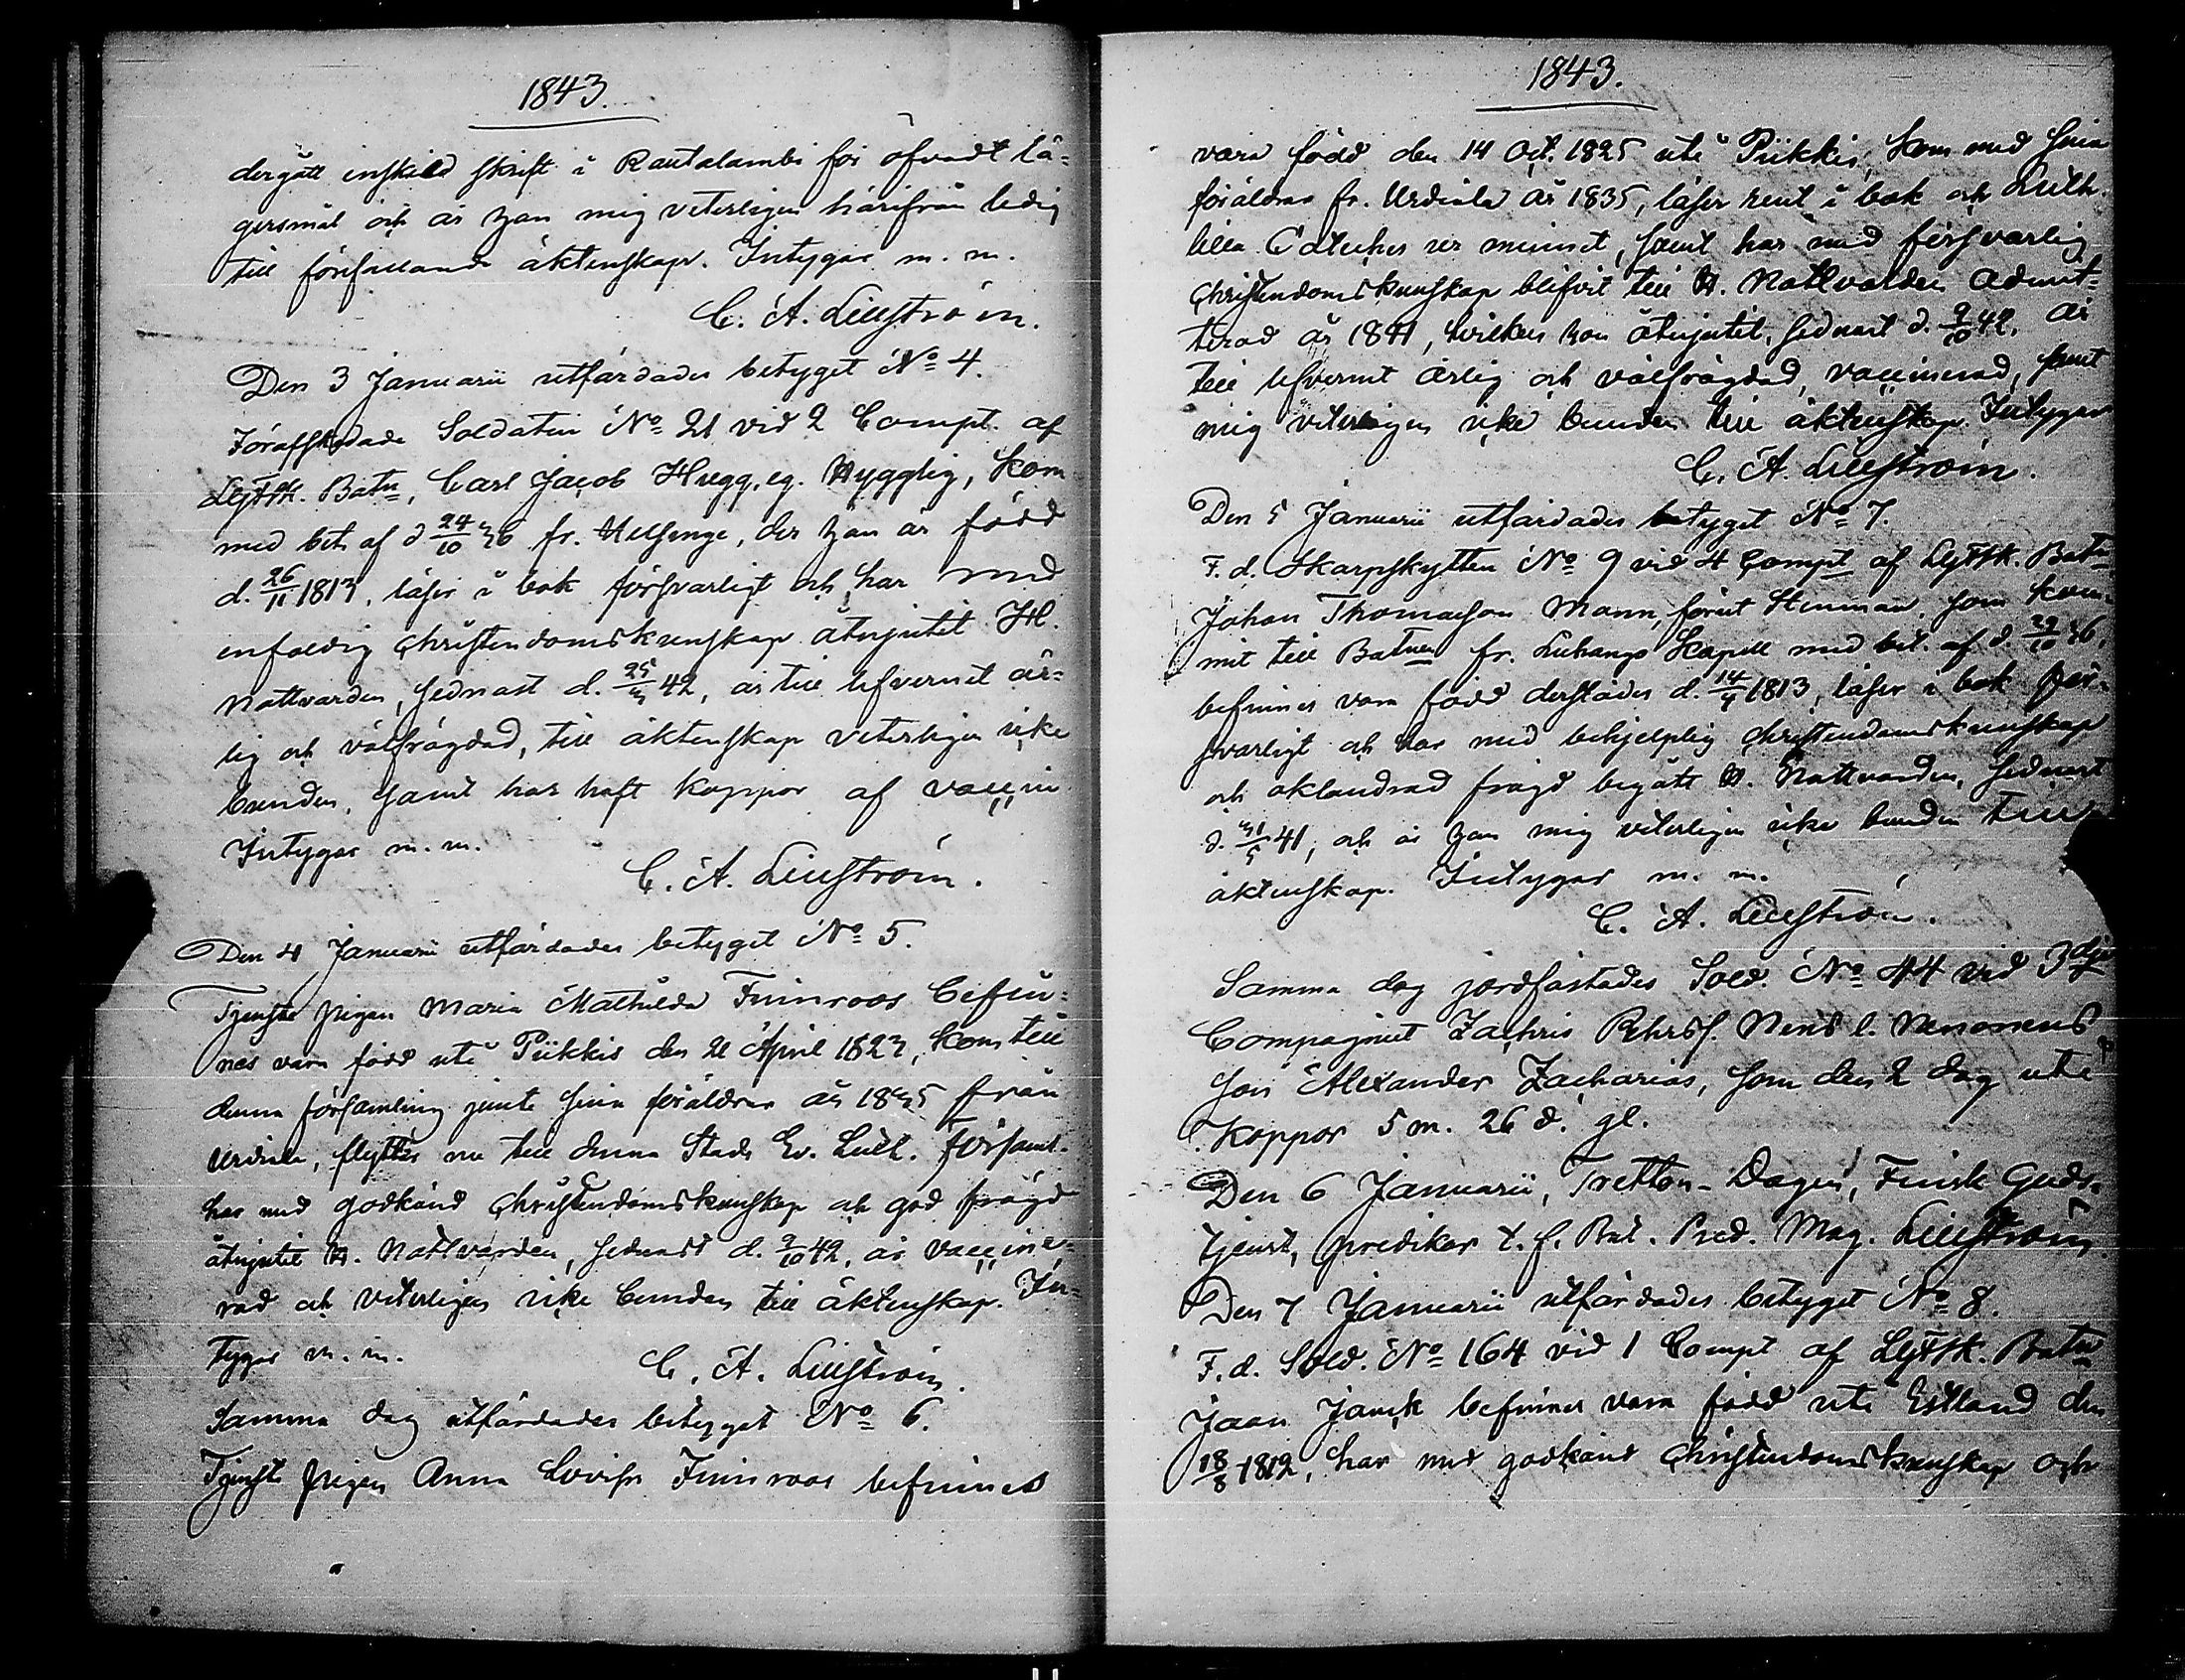 1843.
dergått enskild skrift i Rautalambi för öfvadt lä-
gersmål och är han mig veterligen härifrån ledig
till förefallande äktenskap. Intygar m. m.
C. A. Lillström.
Den 3 Januarii utfärdades betyget No 4.
Förafskedade Soldaten No 21 vid 2 Compt. af
LiftSk. Batn, Carl Jacob Hregg, eg. Hygglig, kom
med bet. af d 24/10 36 fr. Helsinge, der han är född
d. 26/11 1813, läser i bok försvarligt och har med
enfaldig Christendomskunskap åtnjutit H.
Nattvarden, sednast d. 25/3 42, är till lefvernet är-
lig och välfrägdad, till äktenskap veterligen icke
bunden, samt har haft koppor af vaccin
Intygar m. m.
C. A. Lillström.
Den 4 Januarii utfärdades betyget No 5.
Tjenste pigan Maria Mathilda Finnroos befin-
nes vara född uti Piikkis den 21 April 1823, kom till
denna församling jemte sina föräldrar år 1835 från
Urdiala, flyttar nu till denna Stads Ev. Luth. församl.
har med godkänd Christendomskunskap och god frägd
åtnjutit H. Nattvarden, sednast d. 2/10 42, är vaccine-
rad och veterligen icke bunden till äktenskap. In-
tygar m. m.
C. A. Lillström.
Samma dag utfärdades betyget No 6.
Tjenste pigan Anna Lovisa Finnroos befinnes
1843.
vara född den 14 Oct. 1825 uti Piikkis, kom med sina
föräldrar fr. Urdiala år 1835, läser rent i bok och Luth.
lilla Cateches ur minnet, samt har med försvarlig
Christendomskunskap blifvit till H. Nattvarden admit-
terad år 1841, hvilken hon åtnjutit, sednast d. 2/10 42. är
till lefvernet ärlig och välfrägdad, vaccinerad, samt
mig veterligen icke bunden till äktenskap. Intygar
C. A. Lillström.
Den 5 Januarii utfärdades betyget No 7.
F. d. Skarpskytten No 9 vid 4 Compt af LiftSk. Batn
Johan Thomasson Mann, förut Stenman, som kom-
mit till Batnen fr. Luhango Kapell med bet. af d. 29/10 36,
befinnes vara född derstädes d. 14/4 1813, läser i bok för-
svarligt och har med behjelplig Christendomskunskap
och oklandrad frägd begått H. Nattvarden, sednast
d. 31/5 41, och är han mig veterligen icke bunden till
äktenskap. Intygar m. m.
C. A. Lillström.
Samma dag jordfästades Sold. No 44 vid 3dje
Compagniet Zachris Rhrsf. Nens l. Nenonens
son Alexander Zacharias, som den 2 dog uti
koppor 5 m. 26 d. gl.
Den 6 Januarii, Tretton-Dagen, Finsk Guds-
tjenst, predikar t. f. Bat. Pred. Mag. Lillström.
Den 7 Januarii utfärdades betyget No 8.
F. d. Sold. No 164 vid 1 Compt af LiftSk. Batn
Jaan Janck befinnes vara född uti Estland den
18/8 1812, har med godkänd Christendomskunskap och